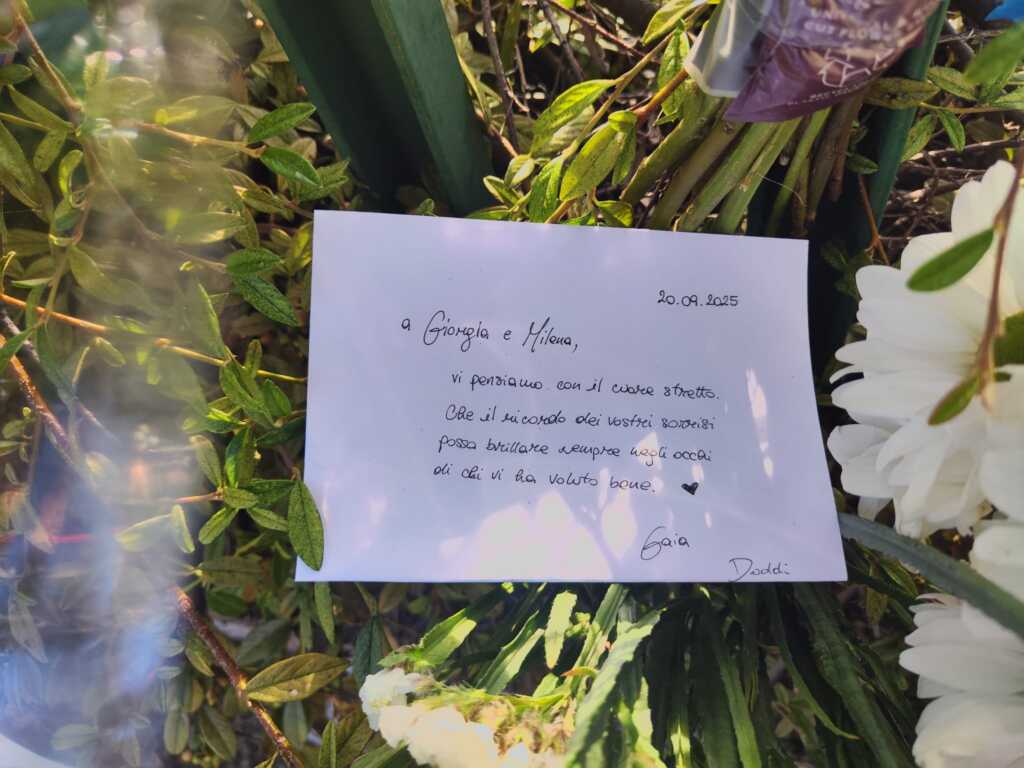 CUT FLOW
20.09.2025
a Giorgia e Milena,
vi pensiamo con il cuore stretto.
Che il ricordo dei vostri sorrisi
possa brillare sempre negli occhi
di chi vi ha voluto bene. ♥
Gaia
Doddi